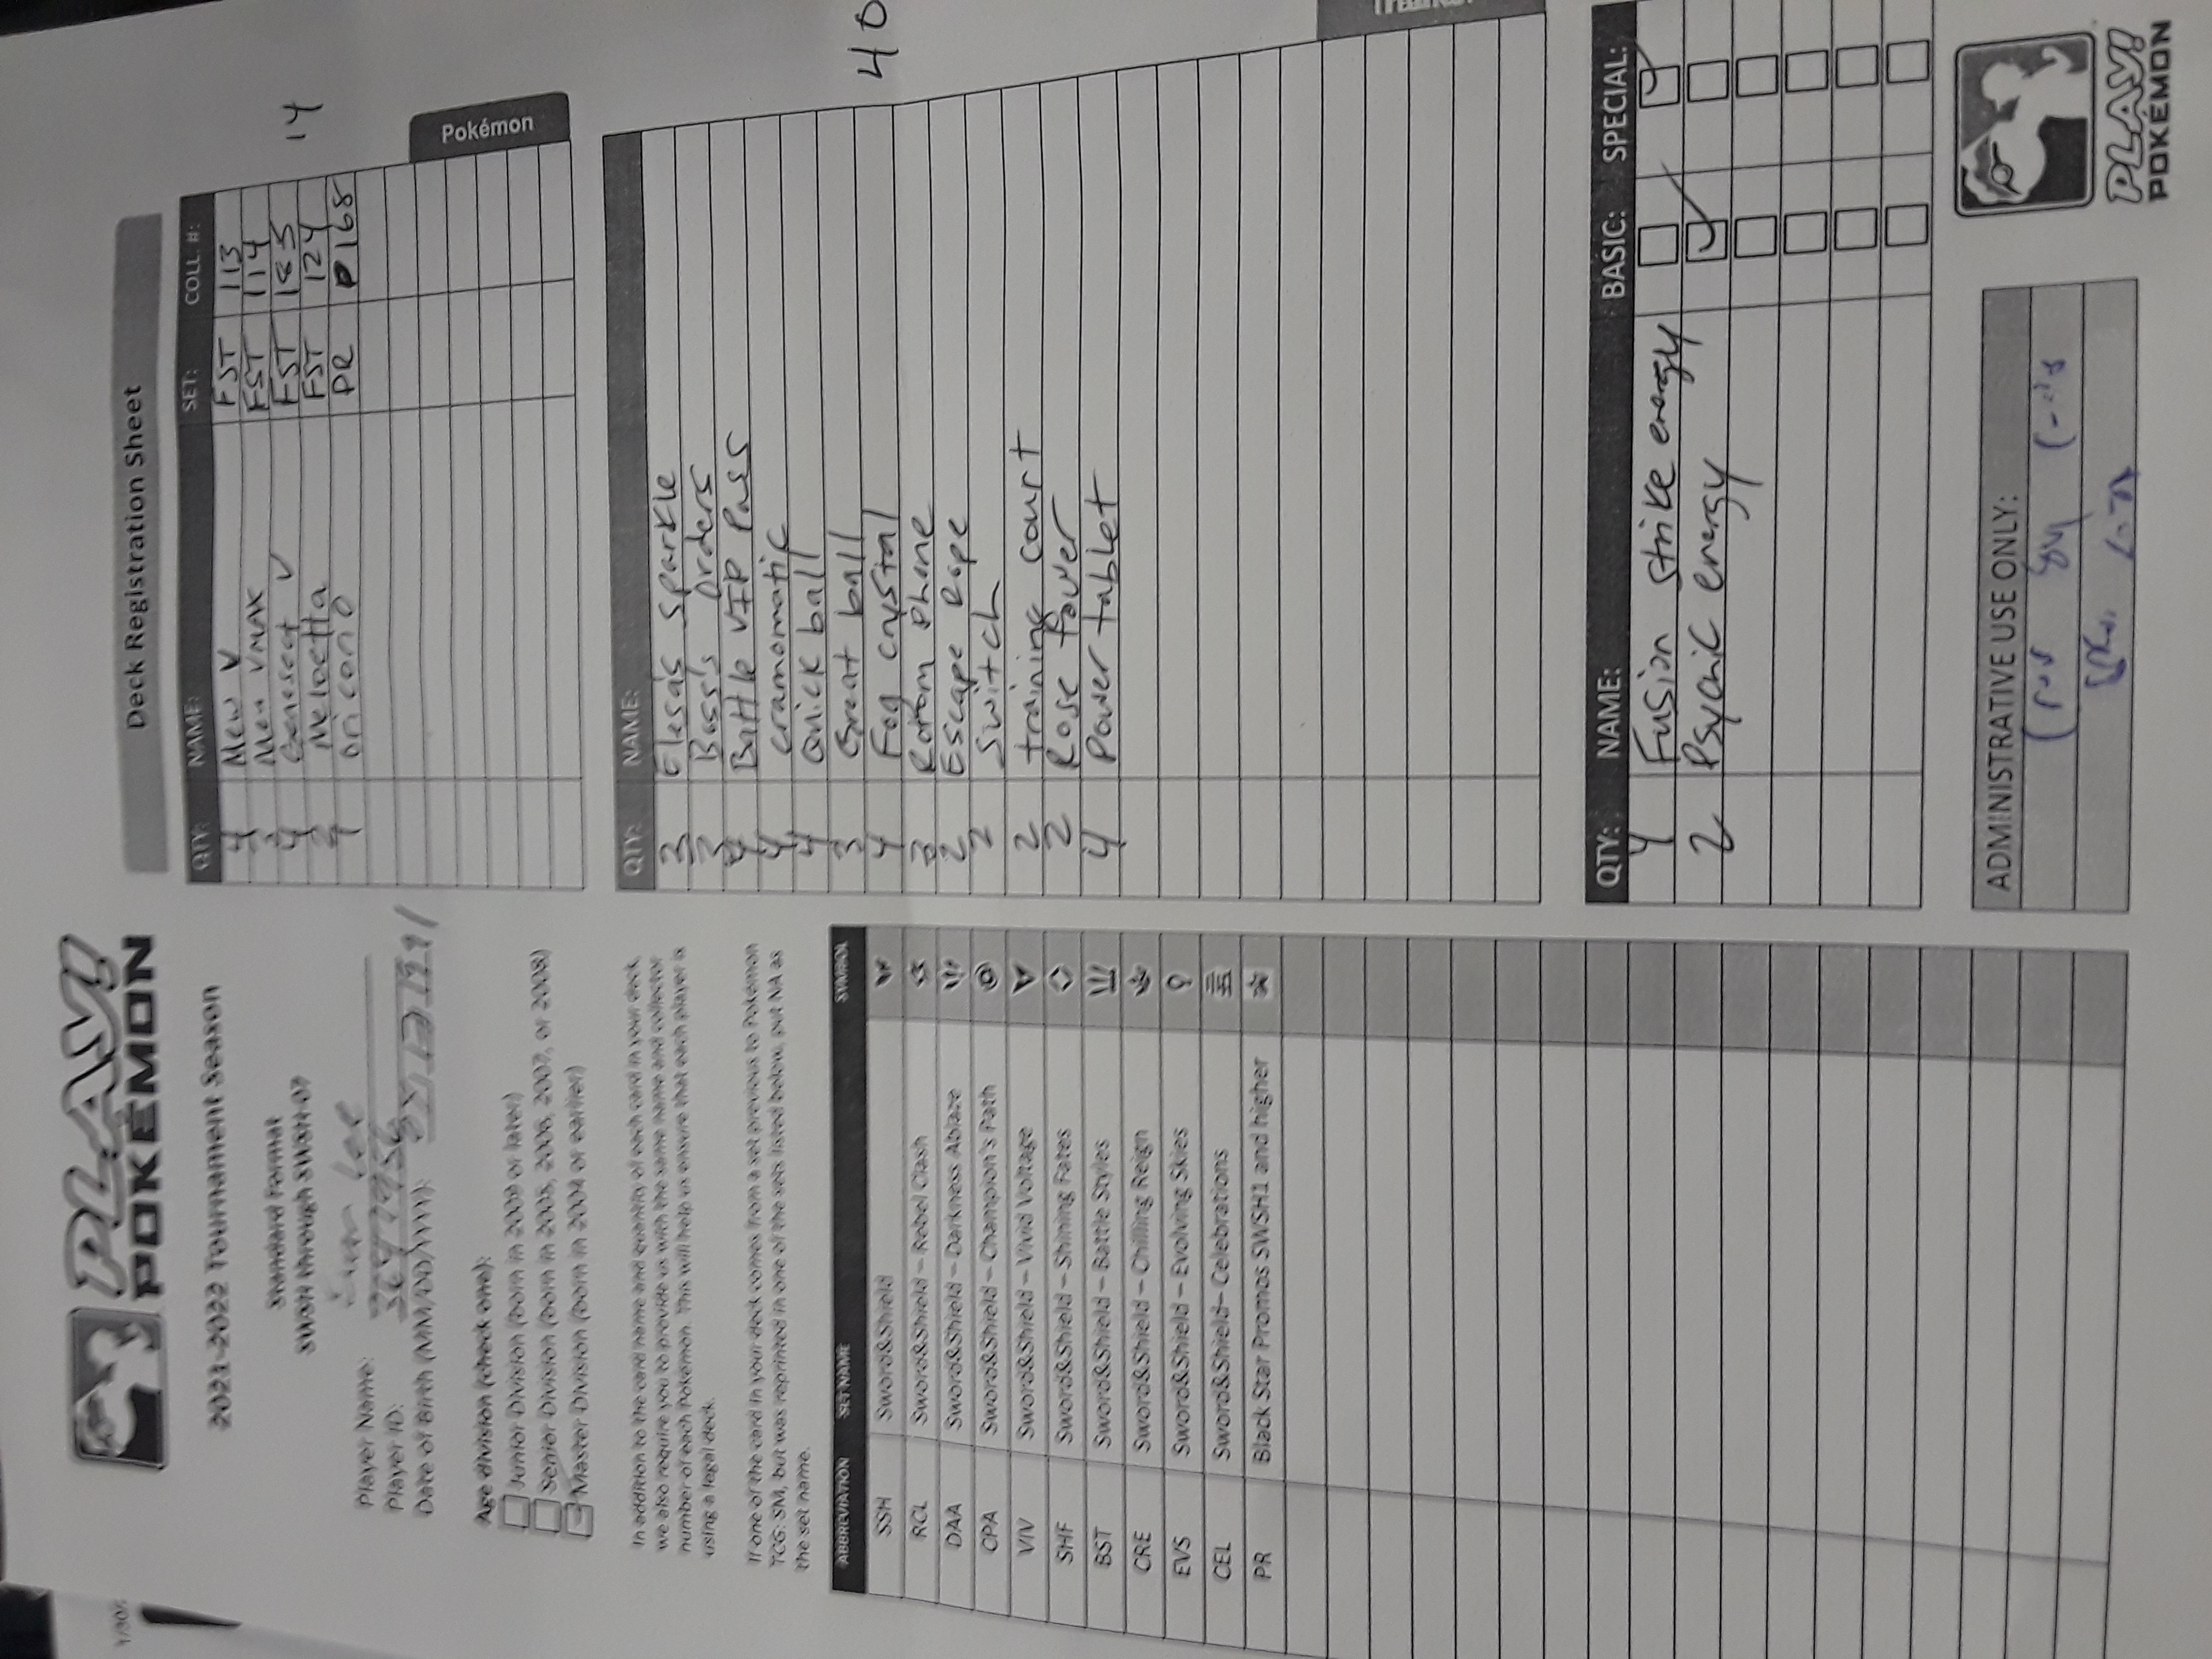 1/30/
PLAY!
POKÉMON
2021-2022 Tournament Season
Standard Format
SWSH through SWSH-07
Player Name: Lee
Player ID:
Date of Birth (MM/DD/YYYY):
Age division (check one):
Junior Division (born in 2009 or later)
Senior Division (born in 2005, 2006, 2007, or 2008)
Master Division (born in 2004 or earlier)
In addition to the card name and quantity of each card in your deck,
we also require you to provide us with the same name and collector
number of each Pokémon. This will help us ensure that each player is
using a legal deck.
If one of the card in your deck comes from a set previous to Pokémon
TCG: SM, but was reprinted in one of the sets listed below, put NA as
the set name.
ABBREVIATION SET NAME SYMBOL
SSH Sword&Shield
RCL Sword&Shield – Rebel Clash
DAA Sword&Shield – Darkness Ablaze
CPA Sword&Shield – Champion's Path
VIV Sword&Shield – Vivid Voltage
SHF Sword&Shield – Shining Fates
BST Sword&Shield – Battle Styles
CRE Sword&Shield – Chilling Reign
EVS Sword&Shield – Evolving Skies
CEL Sword&Shield– Celebrations
PR Black Star Promos SWSH1 and higher
Deck Registration Sheet
QTY: NAME: SET: COLL. #:
4 Mew V FST 113
Mew VMAX FST 114
4 Genesect V FST 185
2 Meloetta FST 124
1 oricorio PR P168
14
Pokémon
QTY: NAME:
3 Elesa's sparkle
3 Boss's orders
4 Battle VIP Pass
4 cramomatic
4 Quick ball
3 Great ball
4 Fog crystal
3 Rotom Phone
2 Escape Rope
2 Switch
2 training court
2 Rose tower
4 Power tablet
40
QTY: NAME: BASIC: SPECIAL:
4 Fusion strike energy
2 Psychic energy
ADMINISTRATIVE USE ONLY:
PLAY!
POKÉMON